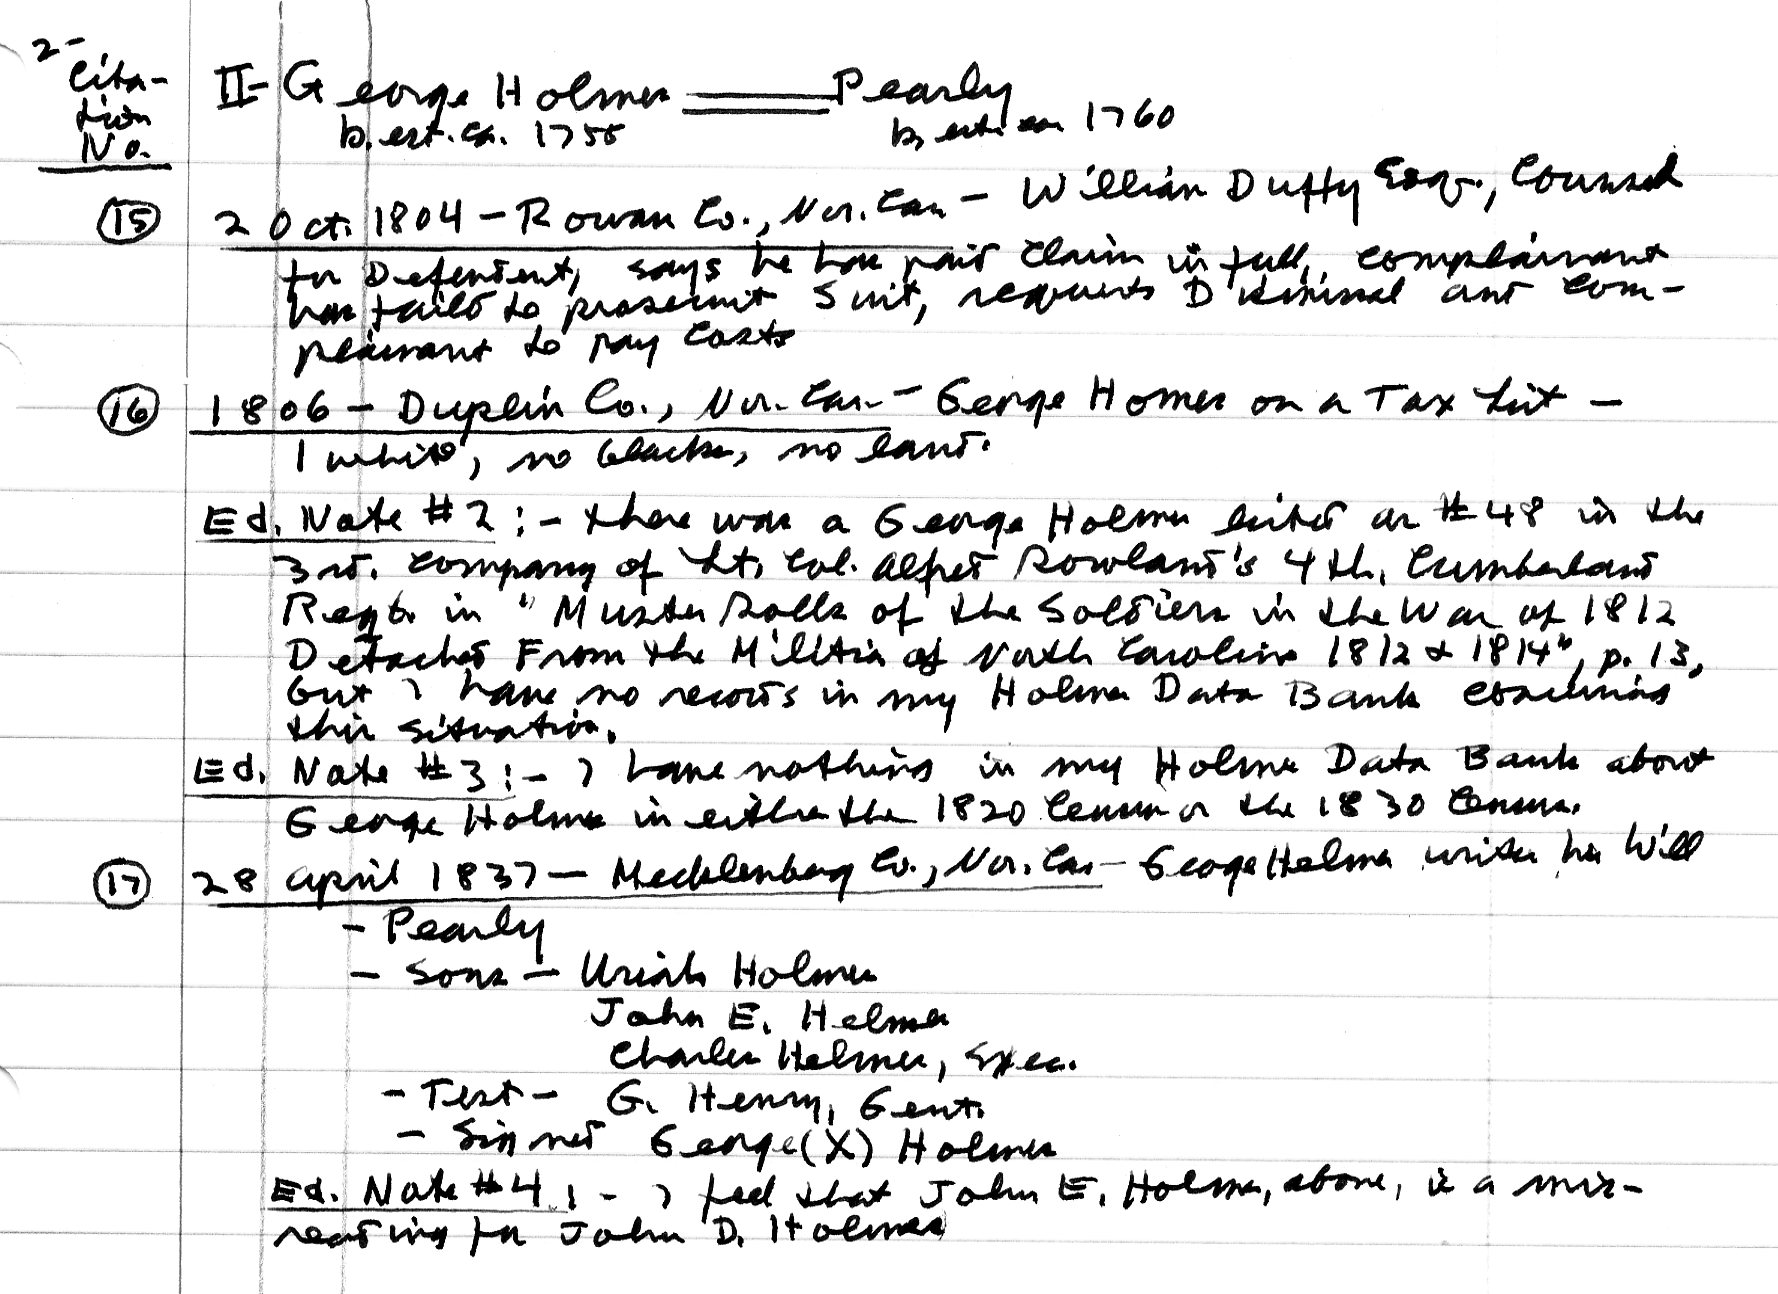 2-
Cita-
tion
No.
II- George Holmes ═ Pearly
b. est. ca. 1755
b. est. ca. 1760
(15) 2 Oct. 1804 - Rowan Co., Nor. Car. - William Duffy Esqr., Counsel
for Defendent, says he has paid claim in full, complainant
has failed to prosecute Suit, requests Dismissal and Com-
plainant to pay Costs
(16) 1806 - Duplin Co., Nor. Car. - George Homes on a Tax List -
1 white, no blacks, no land.
Ed. Note #2:- there was a George Holmes listed as #48 in the
3rd. Company of Lt. Col. Alfred Rowland's 4th. Cumberland
Regt. in "Muster Rolls of the Soldiers in the War of 1812
Detached From the Militia of North Carolina 1812 & 1814", p. 13,
but I have no records in my Holmes Data Bank
this situation.
Ed. Note #3:- I have nothing in my Holmes Data Bank about
George Holmes in either the 1820 Census or the 1830 Census.
(17) 28 April 1837 - Mecklenburg Co., Nor. Car - George Helms writes his Will
- Pearly
- Sons - Uriah Holmes
John E. Helmes
Charles Helmes, Exec.
- Test - G. Henry, Gent.
- Signed George (X) Holmes
Ed. Note #4:- I feel that John E. Holmes, above, is a mis-
reading for John D. Holmes